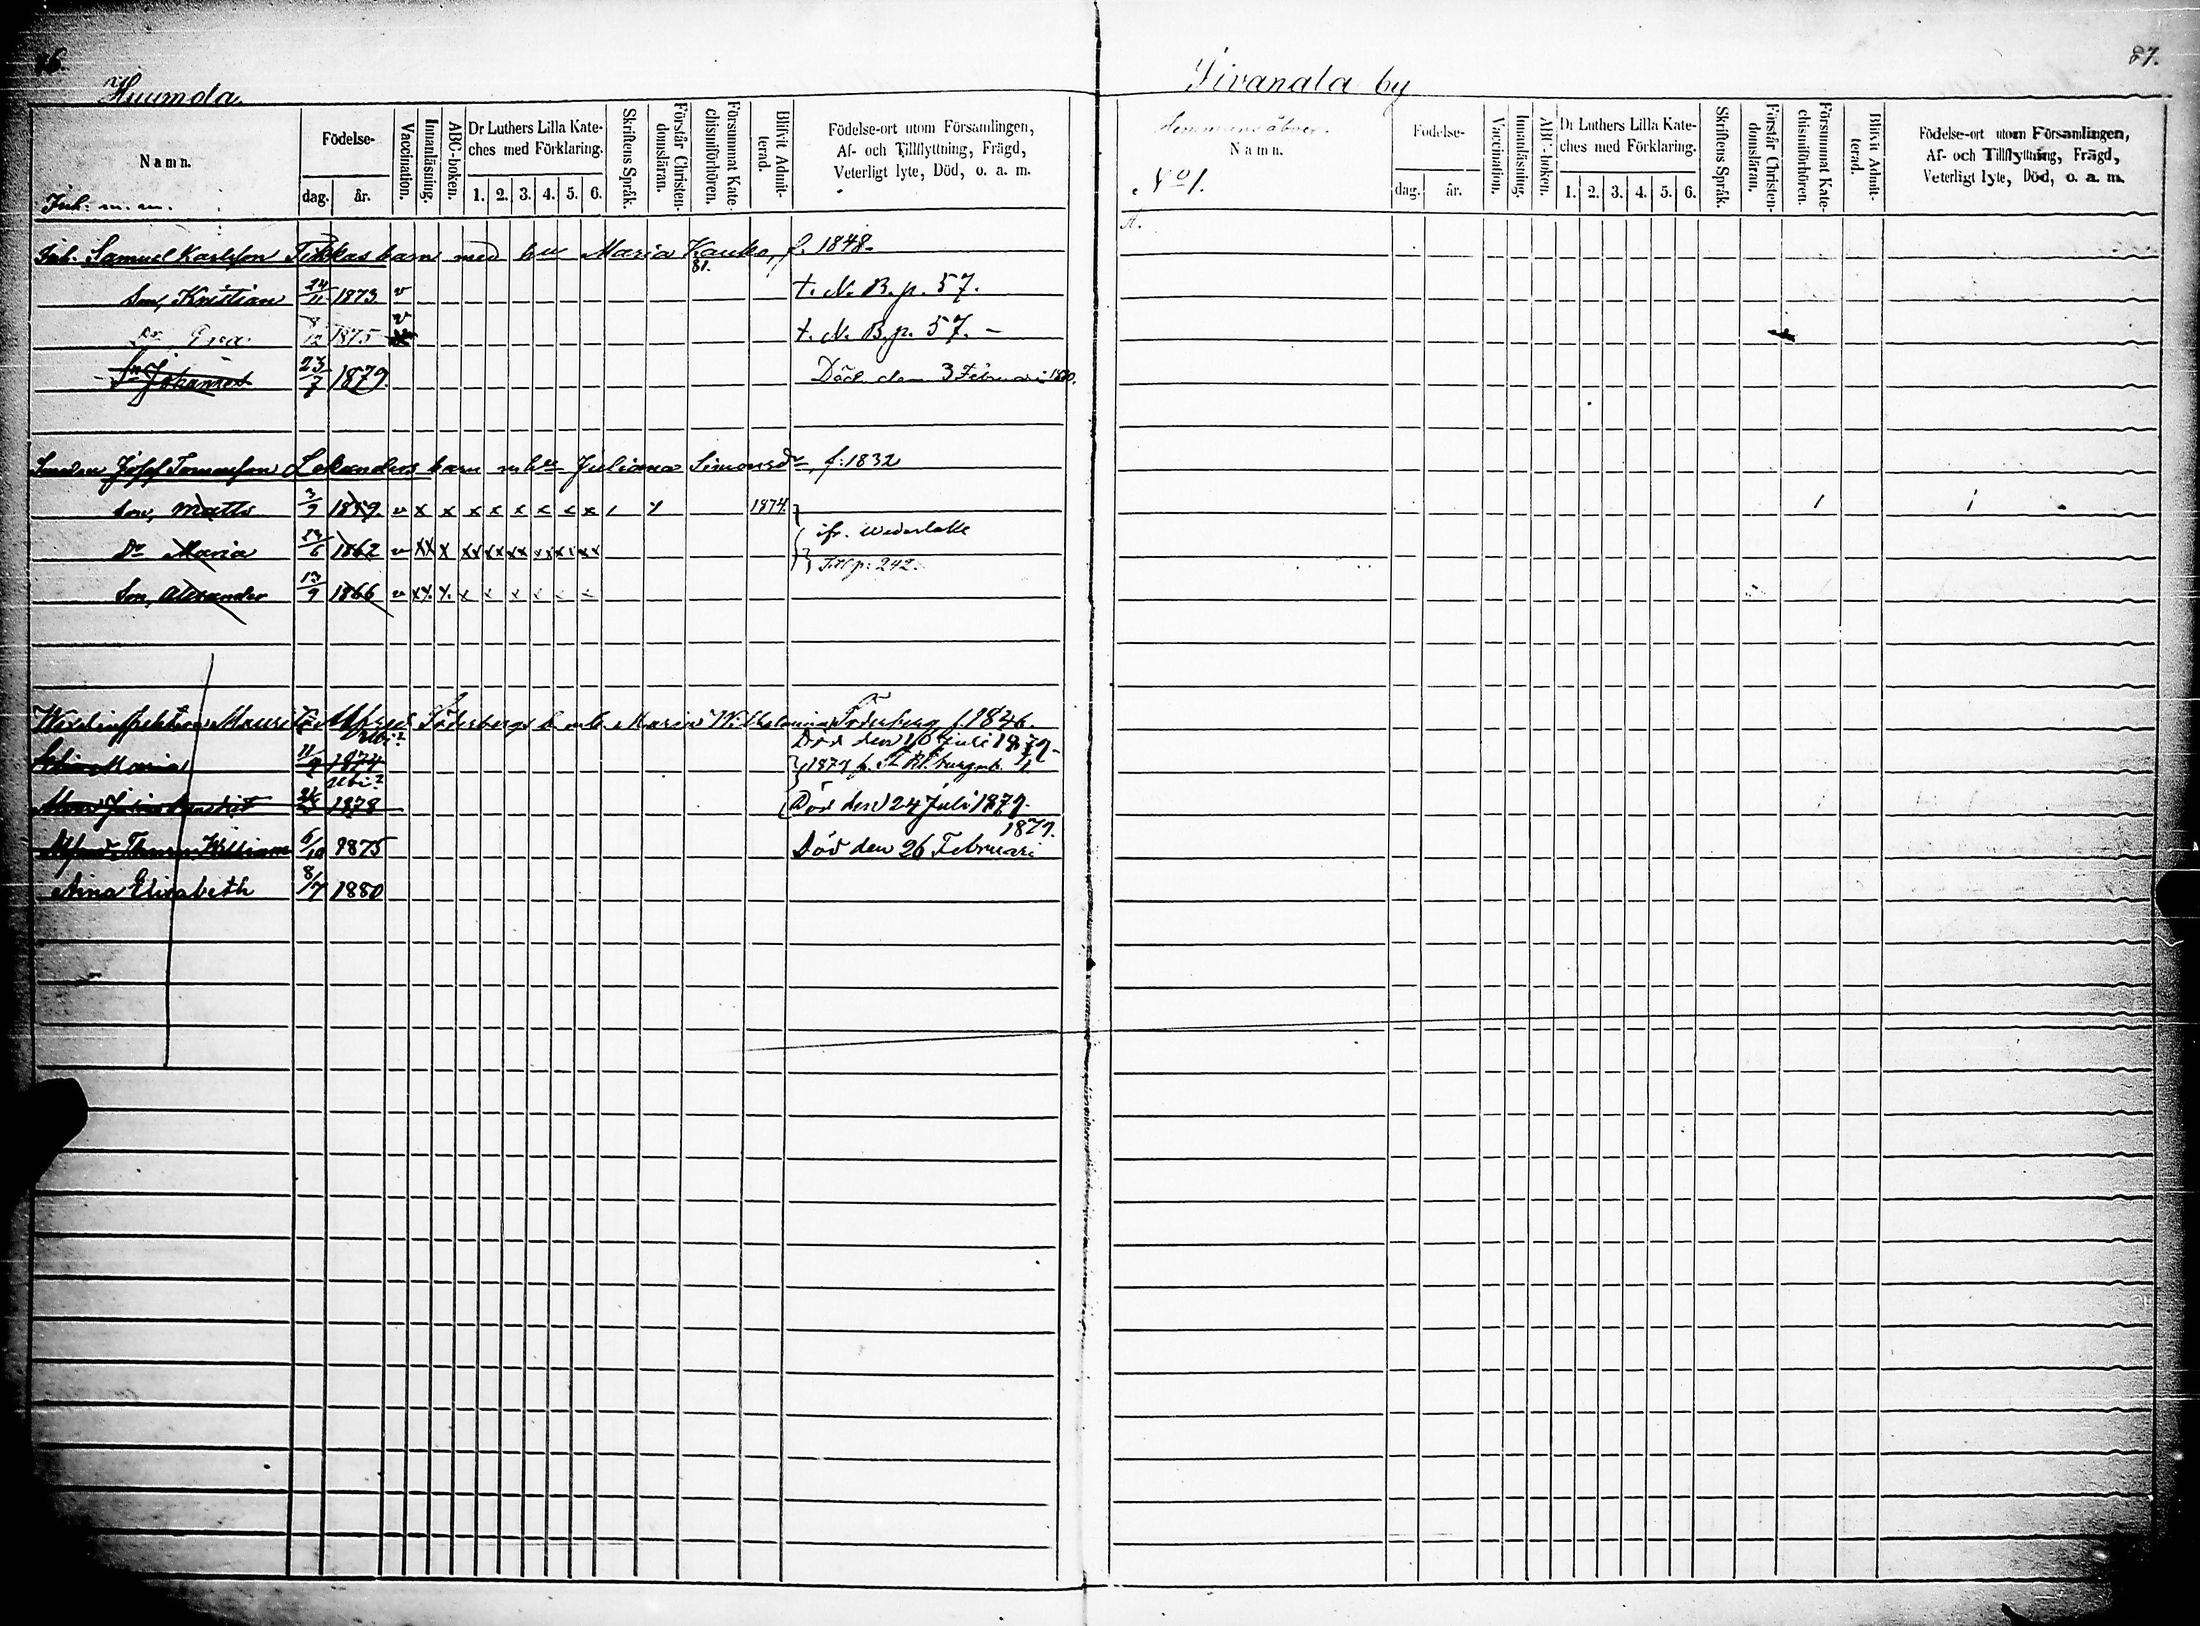 Huumola.
Namn.
Inh: m. m.
Födelse-
dag.
år.
Vaccination.
Innanläsning.
ABC-boken.
Dr Luthers Lilla Kate-
ches med Förklaring.
1. 2. 3. 4. 5. 6.
Skriftens Språk.
Förstår Christen-
domsläran.
Försummat Kate-
chismiförhören.
Blifvit Admit-
terad.
Födelse-ort utom Församlingen,
Af- och Tillflyttning, Frägd,
Veterligt lyte, Död, o. a. m.
Inh. Samuel Karlsson Tikkas barn med hu Maria Kauko, f. 1848.
81.
Son, Kristian 24/11 1873 v t. N. B. p. 57.
Dr 12 1875 v t. N. B. p. 57. -
Sn Johannes 23/7 1879 Död den 3 Februari 1880.
Smeden Josef Tomasson Lekanders barn m hu Juliana Simonsdr, f: 1832
Son, Matts 3/9 1859 v x x x x x x x x 1874
Dr Maria 6 1862 v xx x xx xx xx xx xx xx
ifr. Wederlaks
T. N p: 242.
Son, Alexander 13/9 1866 v xx x. x x x x x x
Alfred Söderbergs b. m h. Maria Wilhelmina Söderberg f. 1846.
Ubi?
Död den 16 Juli 1879.
Maria 11/9 1874
Ubi?
1878 Död den 24 Juli 1879.
William 6/10 1875 Död den 26 Februari 1879.
Aina Elisabeth 8/7 1880
Sivanala by
87.
Hemmansåboer.
Namn.
No 1.
A.
Födelse-
dag.
år.
Vaccination.
Innanläsning.
ABC-boken.
Dr Luthers Lilla Kate-
ches med Förklaring.
1. 2. 3. 4. 5. 6.
Skriftens Språk.
Förstår Christen-
domsläran.
Försummat Kate-
chismiförhören.
Blifvit Admit-
terad.
Födelse-ort utom Församlingen,
Af- och Tillflyttning, Frägd,
Veterligt lyte, Död, o. a. m.